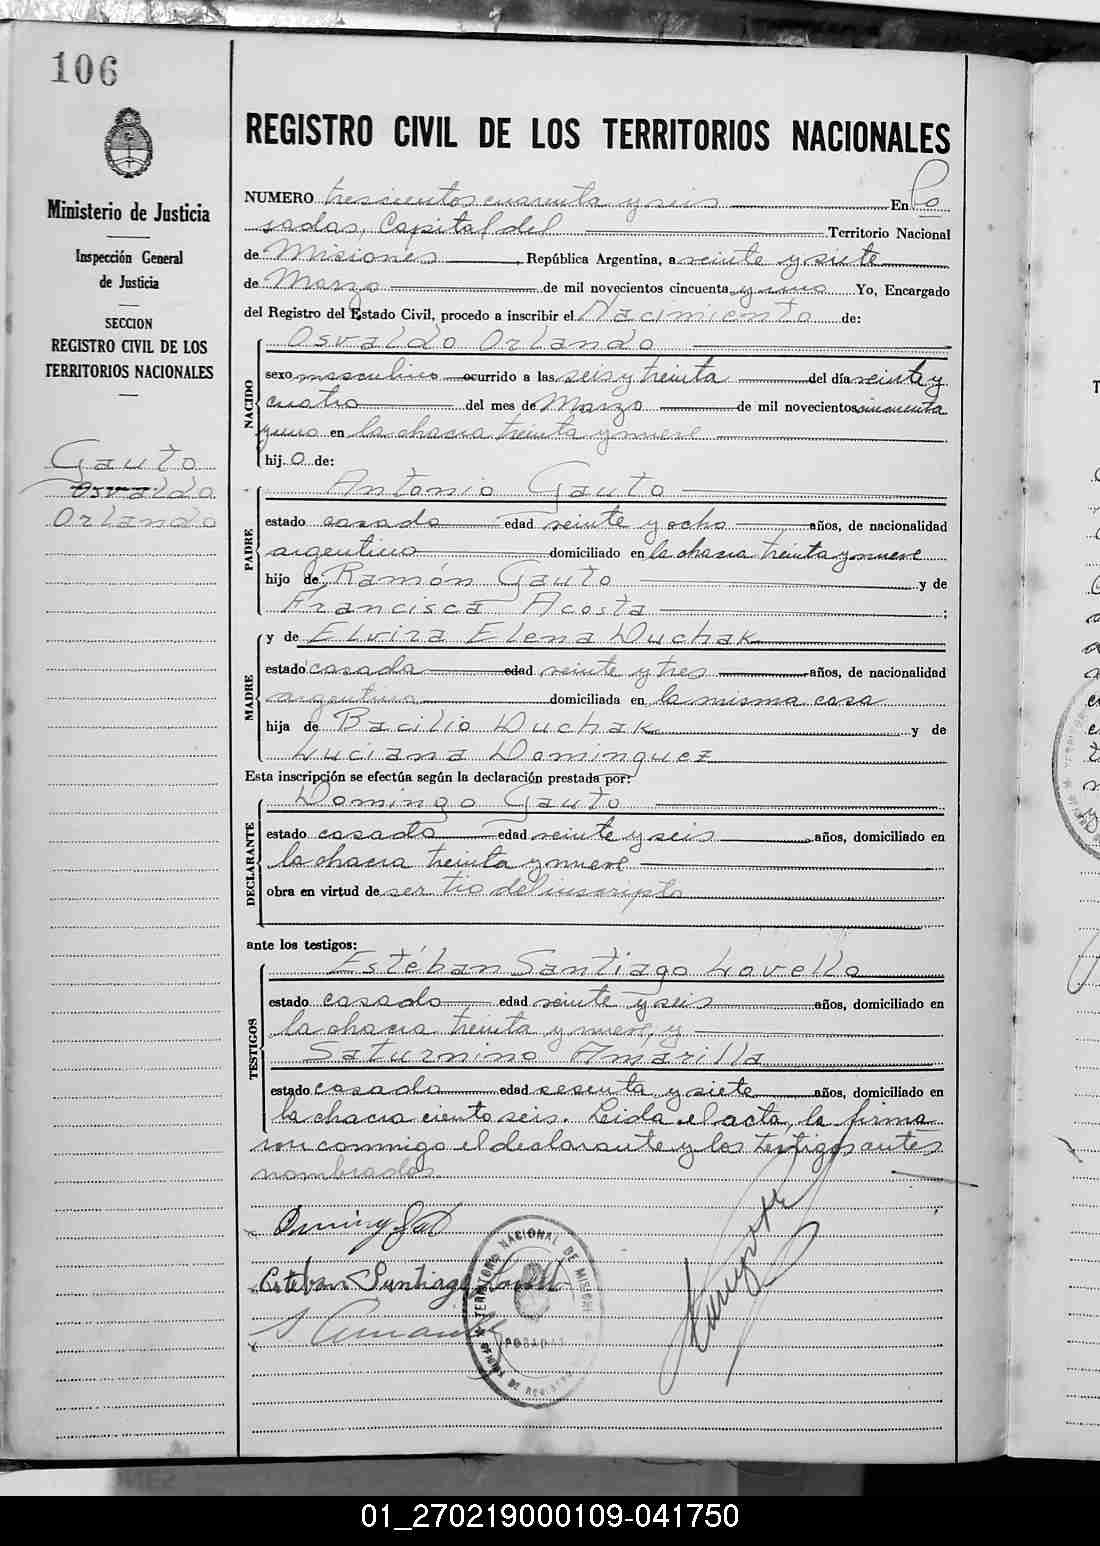 106
Ministerio de Justicia
Inspección General
de Justicia
SECCION
REGISTRO CIVIL DE LOS
TERRITORIOS NACIONALES
Gauto
Osvaldo
Orlando
REGISTRO CIVIL DE LOS TERRITORIOS NACIONALES
NUMERO trescientos cuarenta y seis En Po
sadas, Capital del Territorio Nacional
de Misiones, República Argentina, a veinte y siete
de Marzo de mil novecientos cincuenta y uno Yo, Encargado
del Registro del Estado Civil, procedo a inscribir el Nacimiento de:
NACIDO
Osvaldo Orlando
sexo masculino ocurrido a las seis y treinta del día veinte y
cuatro del mes de Marzo de mil novecientos cincuenta
y uno en la chacra treinta y nueve
hijo de:
PADRE
Antonio Gauto
estado casado edad veinte y ocho años, de nacionalidad
argentino domiciliado en la chacra treinta y nueve
hijo de Ramón Gauto y de
Francisca Acosta;
MADRE
y de Elvira Elena Duchak
estado casada edad veinte y tres años, de nacionalidad
argentina domiciliada en la misma casa
hija de Bacilio Duchak y de
Luciana Dominguez
Esta inscripción se efectúa según la declaración prestada por:
DECLARANTE
Domingo Gauto
estado casado edad veinte y seis años, domiciliado en
la chacra treinta y nueve
obra en virtud de ser tio del inscripto
ante los testigos:
TESTIGOS
Estéban Santiago Lovello
estado casado edad veinte y seis años, domiciliado en
la chacra treinta y nueve, y
Saturnino Amarilla
estado casado edad sesenta y siete años, domiciliado en
la chacra ciento seis. Leida el acta, la firma
ron conmigo el declarante y los testigos antes
nombrados.
Esteban Santiago
TERRITORIO NACIONAL DE MISIONES
POSADAS
01_270219000109-041750